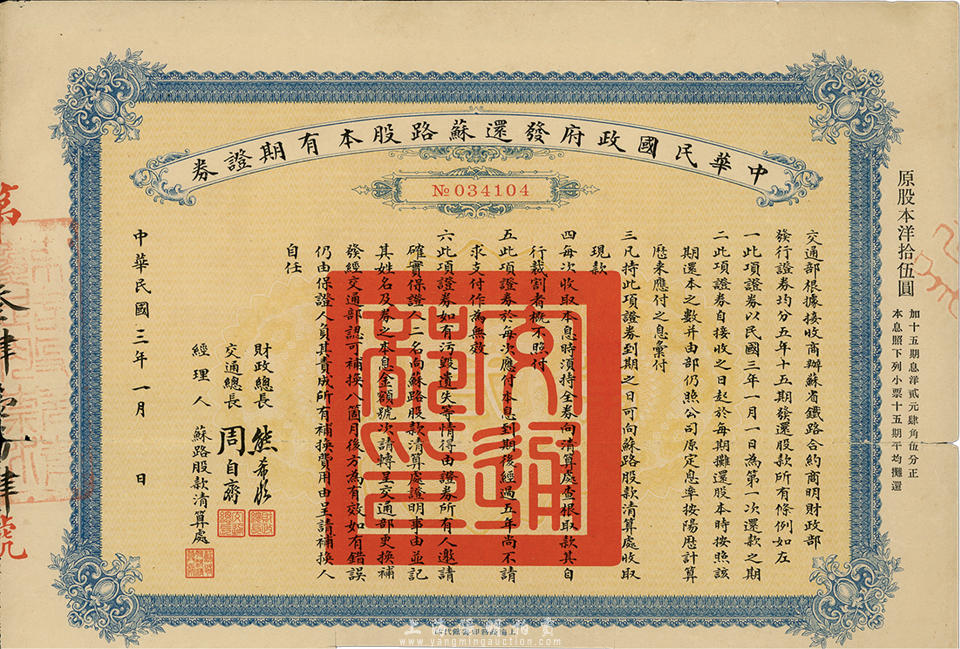 中華民國政府發還蘇路股本有期證券
№034104
原股本洋拾伍圓
加十五期息洋貳元肆角伍分正
本息照下列小票十五期平均攤還
交通部根據接收商辦蘇省鐵路合約商明財政部
發行證券均分五年十五期發還股款所有條例如左
一此項證券以民國三年一月一日為第一次還款之期
二此項證券自接收之日起於每期攤還股本時按照該
期還本之數并由部仍照公司原定息率按陽歷計算
歷來應付之息彙付
三凡持此項證券到期之日可向蘇路股款清算處收取
現款
四每次收取本息時須持全券向清算處查根取款其自
行裁割者概不照付
五此項證券於每次應付本息到期後經過五年尚不請
求支付作為無效
六此項證券如有污毀遺失等情得由證券所有人邀請
確實保證人二名向蘇路股款清算處證明事由並記
其姓名及券之本息金額號次請轉呈交通部更換補
發經交通部認可補換八箇月後方為有效如有錯誤
仍由保證人員其責成所有補換費用由呈請補換人
自任
財政總長 熊希齡
交通總長 周自齊
經理人 蘇路股款清算處
中華民國三年一月 日
交通部印
第
叁肆壹零肆
號
上海陽明拍賣
www.yangmingauction.com